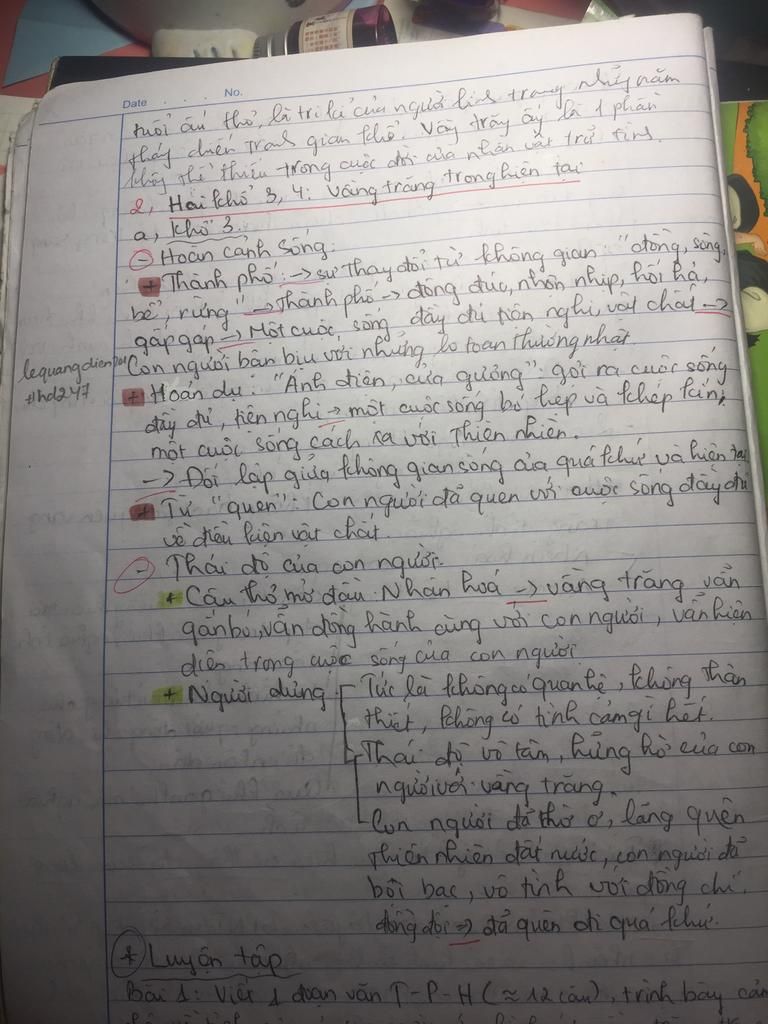 Date . . . . No.
tuổi ấu thơ, là tri kỉ của người lính trong những năm
tháng chiến tranh gian khổ. Vầng trăng ấy là 1 phần
không thể thiếu trong cuộc đời của nhân vật trữ tình.
2, Hai khổ 3, 4: Vầng trăng trong hiện tại
a, Khổ 3.
- Hoàn cảnh sống:
+ Thành phố: -> sự thay đổi từ không gian "đồng, sông,
bể, rừng" -> thành phố -> đông đúc, nhộn nhịp, hối hả,
gấp gáp -> Một cuộc sống đầy đủ tiện nghi, vật chất ->
Con người bận bịu với những lo toan thường nhật.
lequangdien
#hd247
+ Hoán dụ: "Ánh điện, cửa gương": gợi ra cuộc sống
đầy đủ, tiện nghi -> một cuộc sống bó hẹp và khép kín;
một cuộc sống cách xa với thiên nhiên.
-> Đối lập giữa không gian sống của quá khứ và hiện tại
+ Từ "quen": Con người đã quen với cuộc sống đầy đủ
về điều kiện vật chất.
- Thái độ của con người.
+ Câu thơ mở đầu: Nhân hoá -> vầng trăng vẫn
gắn bó, vẫn đồng hành cùng với con người, vẫn hiện
diện trong cuộc sống của con người
+ Người dưng Tức là không có quan hệ, không thân
thiết, không có tình cảm gì hết.
Thái độ vô tâm, hửng hờ của con
người với vầng trăng.
Con người đã thờ ơ, lãng quên
thiên nhiên đất nước, con người đã
bội bạc, vô tình với đồng chí,
đồng đội => đã quên đi quá khứ.
* Luyện tập
Bài 1: Viết 1 đoạn văn T-P-H (≈ 12 câu), trình bày cảm